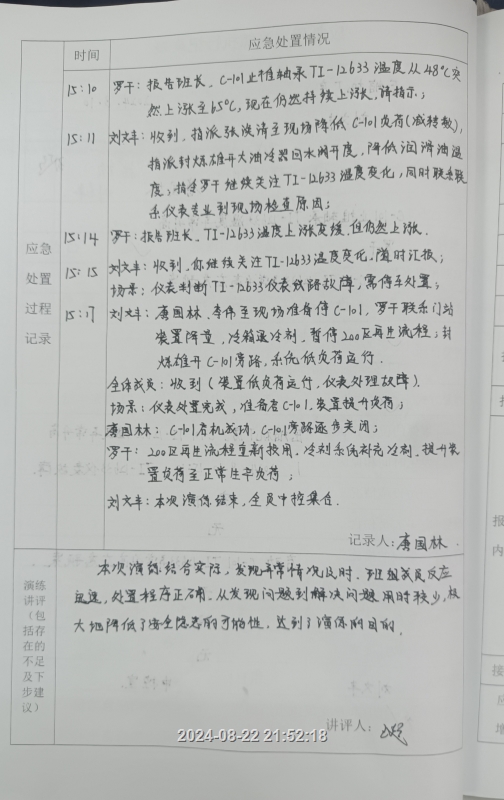 应急处置情况
时间
应急处置过程记录
15:10 罗干:报告班长、C-101止推轴承TI-12633温度从48℃突
然上涨至65℃,现在仍然持续上涨,请指示;
15:11 刘文丰:收到,指派张焕清至现场降低C-101负荷(减转数),
指派封炼雄开大油冷器回水阀开度,降低润滑油温
度;指令罗干继续关注TI-12633温度变化,同时联系联
系仪表专业到现场检查原因;
15:14 罗干:报告班长、TI-12633温度上涨变缓,但仍然上涨.
15:15 刘文丰:收到,你继续关注TI-12633温度变化,随时汇报;
场景:仪表判断TI-12633仪表线路故障,需停车处置;
15:17 刘文丰:唐国林、李伟至现场准备停C-101,罗干联系门站
装置降量,冷箱退冷剂,暂停200区再生流程;封
炼雄开C-101旁路,系统低负荷运行.
全体成员:收到(装置低负荷运行,仪表处理故障).
场景:仪表处置完成,准备启C-101,装置提升负荷;
唐国林:C-101启机成功,C-101旁路逐步关闭;
罗干:200区再生流程重新投用,冷剂系统补充冷剂,提升装
置负荷至正常生产负荷;
刘文丰:本次演练结束,全员中控集合.
记录人:唐国林
演练讲评(包括存在的不足及下步建议)
本次演练结合实际,发现异常情况及时,班组成员反应
迅速,处置程序正确,从发现问题到解决问题用时较少,极
大地降低了安全隐患的可能性,达到了演练的目的.
讲评人:
2024-08-22 21:52:18
报
内
接
应
地